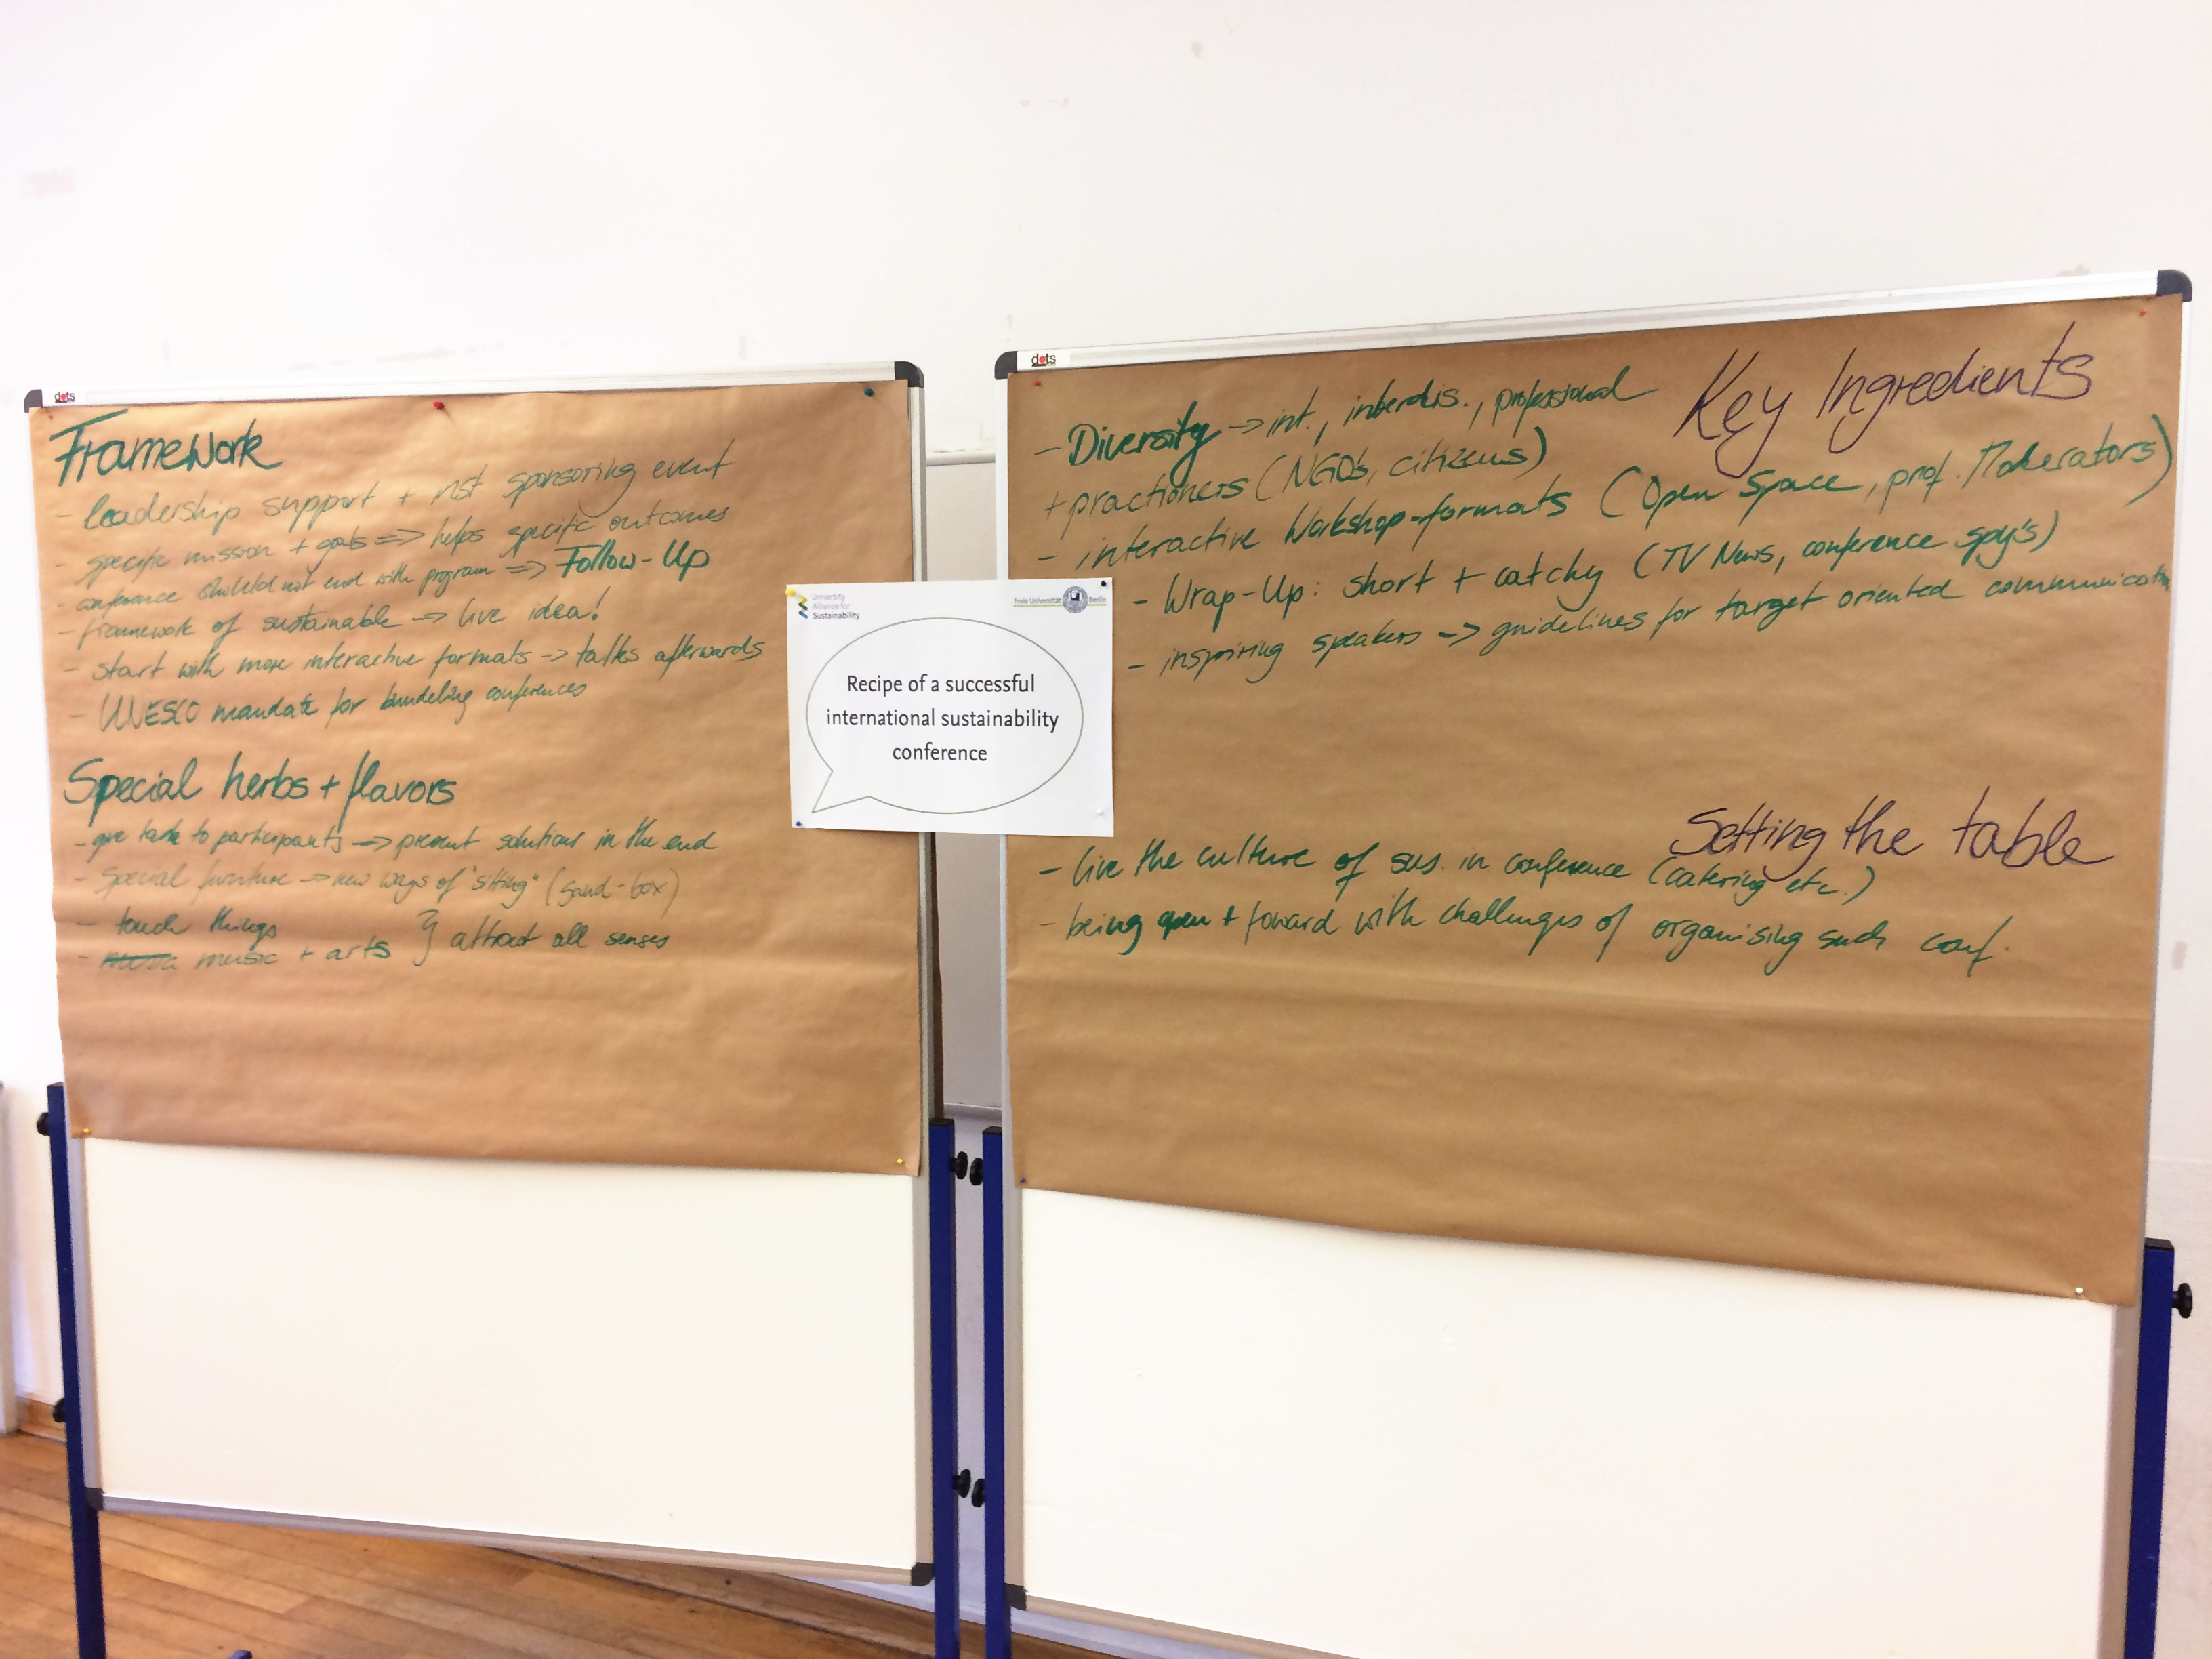 dots
Framework
- leadership support + inst sponsoring event
- specific mission + goals => helps specific outcomes
- conference should not end with program => Follow-Up
- framework of sustainable -> live idea!
- start with more interactive formats -> talks afterwards
- UNESCO mandate for bundeling conferences
Special herbs + flavors
- give task to participants -> present solutions in the end
- Special furniture -> new ways of "sitting" (sand-box)
- touch things
- music + arts } attract all senses
University
Alliance for
Sustainability
Freie Universität Berlin
Recipe of a successful
international sustainability
conference
dots
Key Ingredients
- Diversity -> int., interdis., professional
+ practioners (NGOs, citizens)
- interactive Workshop-formats (Open Space, prof. Moderators)
- Wrap-Up: short + catchy (TV News, conference spy's)
- inspiring speakers -> guidelines for target oriented communicatn
Setting the table
- live the culture of sus. in conference (catering etc.)
- being open + foward with challenges of organising such conf.